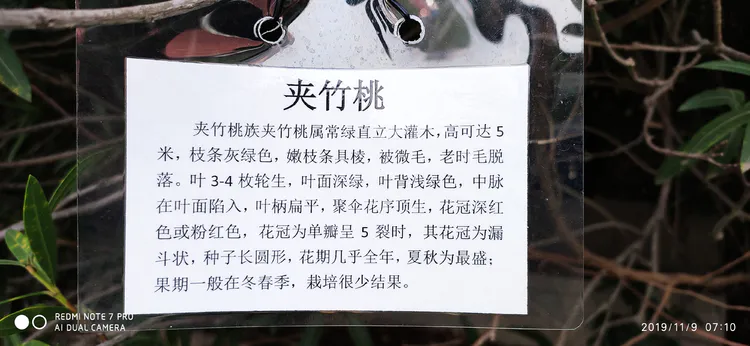 夹竹桃
夹竹桃族夹竹桃属常绿直立大灌木，高可达 5
米，枝条灰绿色，嫩枝条具棱，被微毛，老时毛脱
落。叶 3-4 枚轮生，叶面深绿，叶背浅绿色，中脉
在叶面陷入，叶柄扁平，聚伞花序顶生，花冠深红
色或粉红色，花冠为单瓣呈 5 裂时，其花冠为漏
斗状，种子长圆形，花期几乎全年，夏秋为最盛；
果期一般在冬春季，栽培很少结果。
REDMI NOTE 7 PRO
AI DUAL CAMERA
2019/11/9 07:10